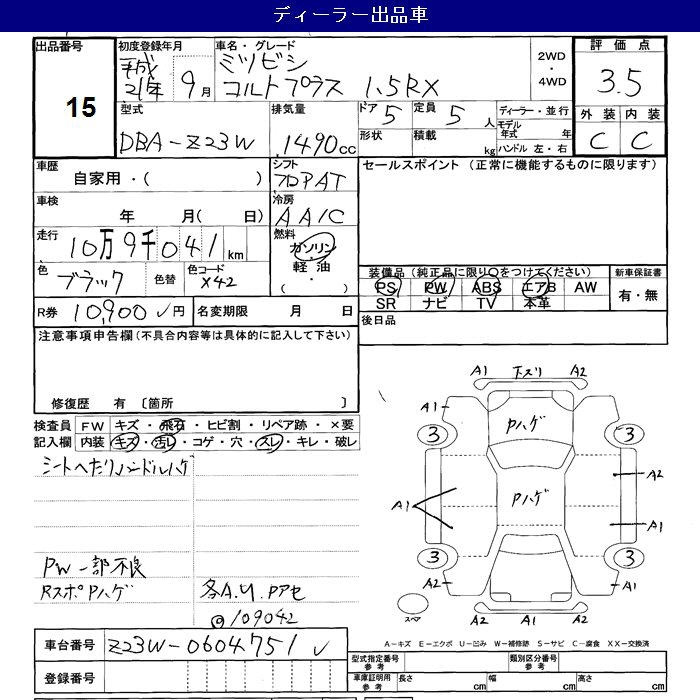 ディーラー出品車
出品番号
15
初度登録年月
平成
21年 9月
車名・グレード
ミツビシ
コルトプラス 1.5RX
2WD
・
4WD
評価点
3.5
外装 内装
C C
型式
DBA-Z23W
排気量
1490cc
ドア 5
定員 5 人
形状
積載 kg
ディーラー・並行
モデル年式 年
ハンドル 左・右
車歴
自家用・( )
シフト
フロアAT
セールスポイント (正常に機能するものに限ります)
車検
年 月( 日)
冷房
AAC
走行
10万9千041km
燃料
ガソリン・
軽油・
( )
色
ブラック
色替
色コード
X42
装備品(純正品に限り○をつけてください)
PS PW ABS エアB AW
SR ナビ TV 本革
新車保証書
有・無
R券 10,900円
名変期限 月 日
後日品
注意事項申告欄(不具合内容等は具体的に記入して下さい)
修復歴 有 〔箇所 〕
検査員記入欄
FW キズ・飛石・ヒビ割・リペア跡・×要
内装 キズ・汚レ・コゲ・穴・スレ・キレ・破レ
シートヘたりハンドルハゲ
PW一部不良
RスポPハゲ
各A.U.Pアセ
@109042
A1 下スリ A2
A1
Pハゲ
3 3
A2
Pハゲ
A1
A1
3 3
A2 A2
A2 A1 A1
スペア
A-キズ E-エクボ U-凹み W-補修跡 S-サビ C-腐食 XX-交換済
車台番号 Z23W-0604751
登録番号
型式指定番号 参考
類別区分番号 参考
車庫証明用 参考
長さ cm
幅 cm
高さ cm